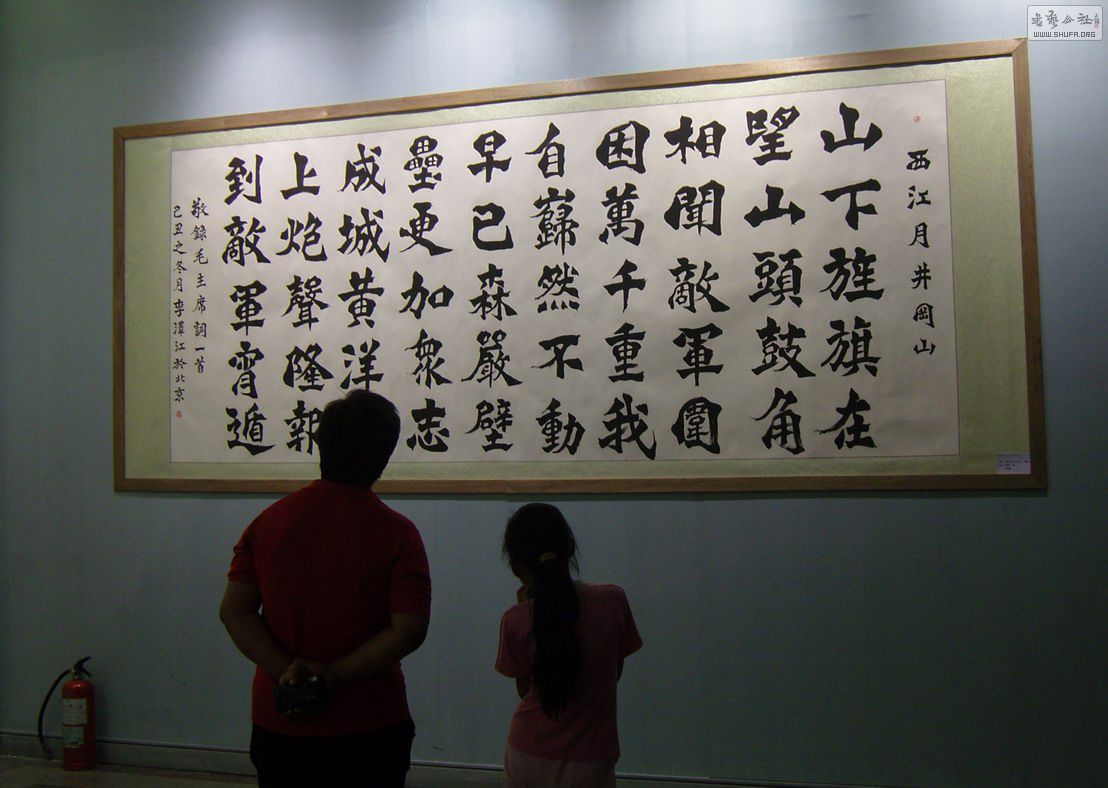 西江月井岡山
山下旌旗在
望山頭鼓角
相聞敵軍圍
困萬千重我
自巋然不動
早已森嚴壁
壘更加衆志
成城黃洋
上炮聲隆報
到敵軍宵遁
敬錄毛主席詞一首
己丑之冬月李澤江於北京
書藝公社
WWW.SHUFA.ORG